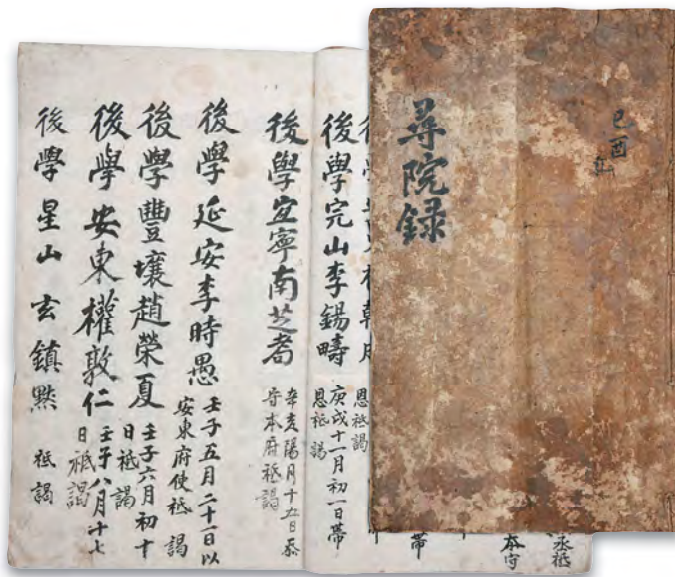 己酉
尋院録
恩祗謁
後學完山李錫疇
庚戌十一月初一日帶
恩祗謁
後學宜寧南芝耉
辛亥陽月十九日忝
守本府祗謁
後學延安李時愚
壬子五月二十一日以
安東府使祗謁
後學豐壤趙榮夏
壬子六月初十
日祗謁
後學安東權敦仁
壬子八月十七
日祗謁
後學星山玄鎮黙
祗謁
丞祗
本守
帶